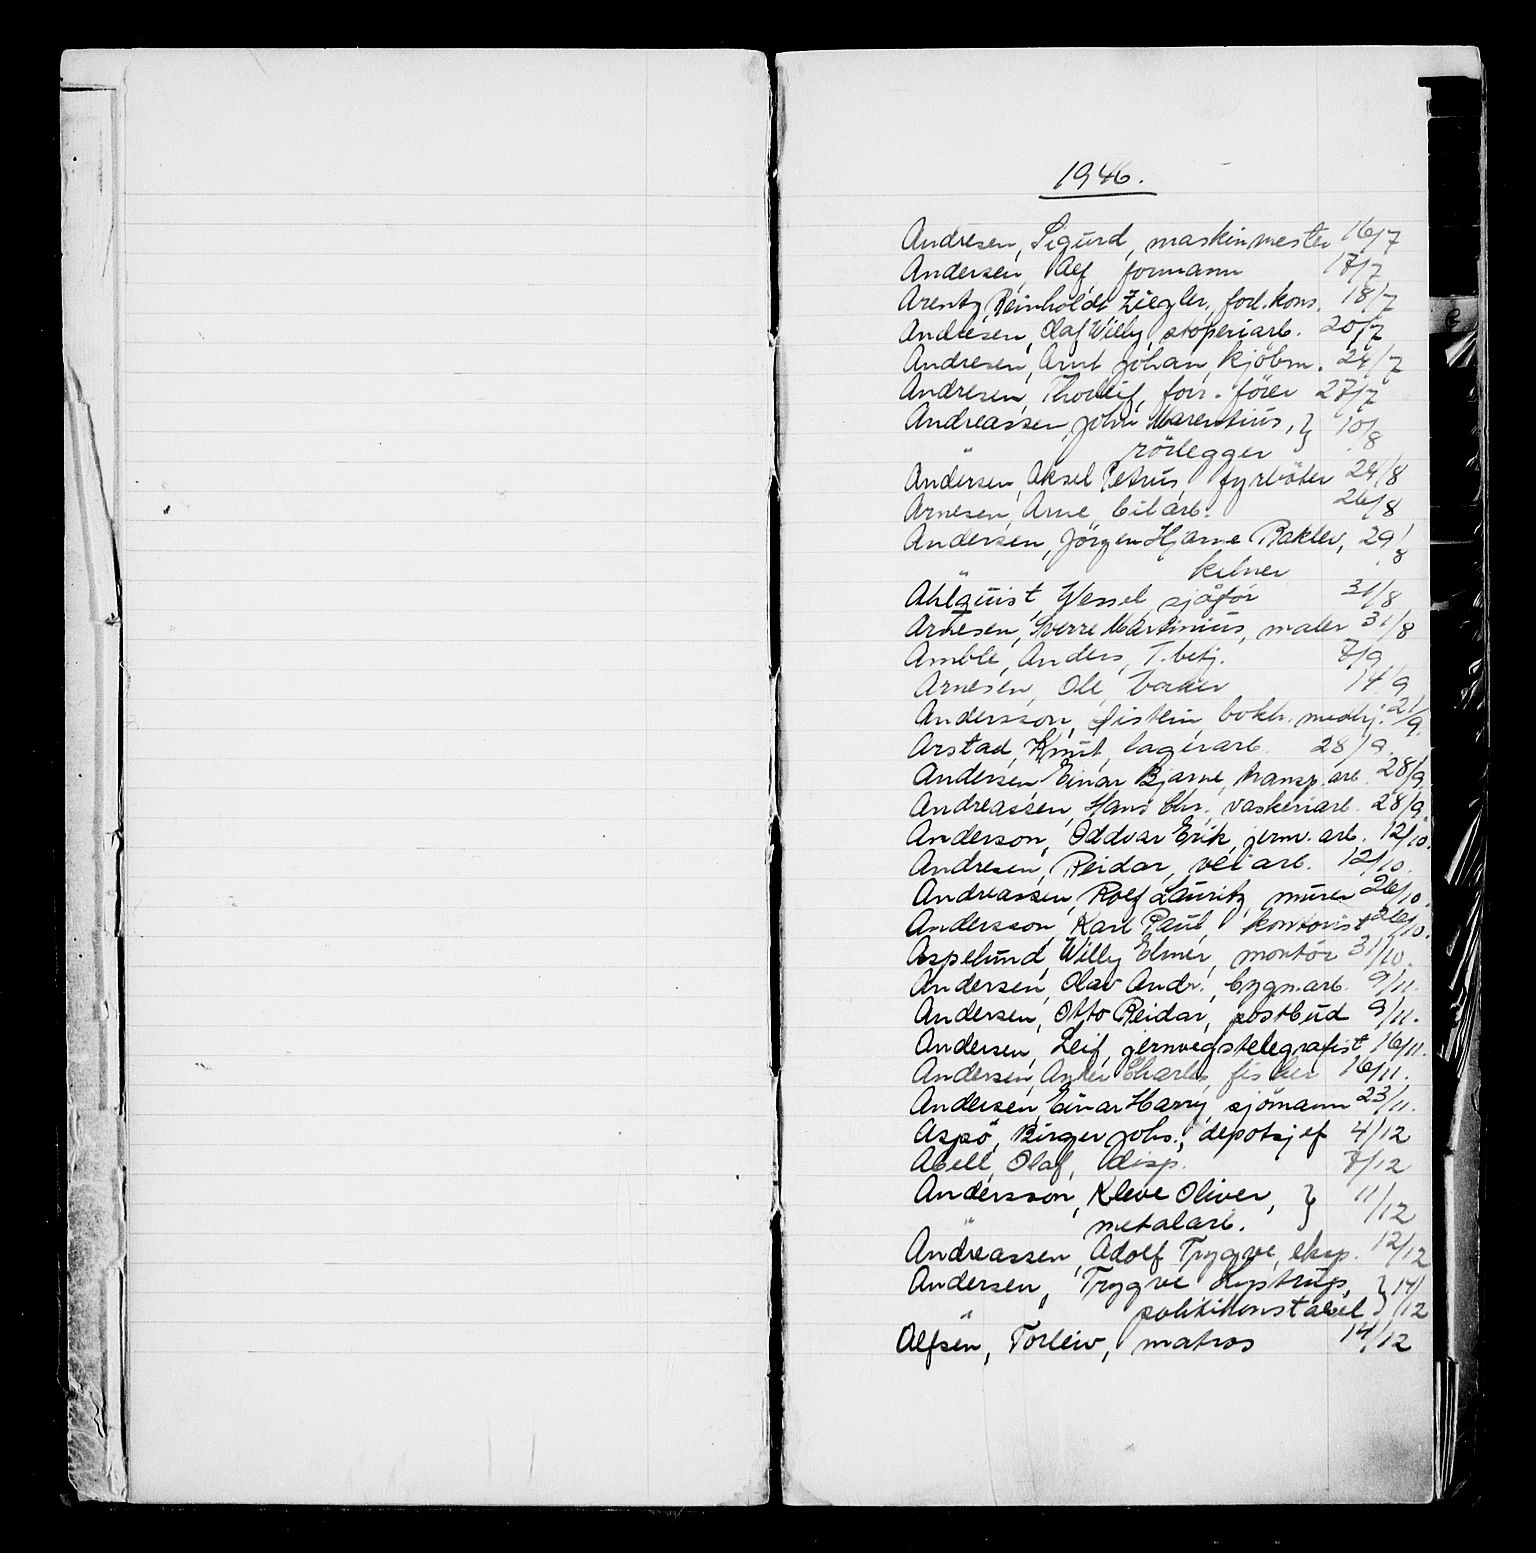 1946.
Andresen, Sigurd, maskinmester 16/7
Andersen, Alf, formann 17/7
Arentz, Reinholdt Ziegler, ford.kons. 18/7
Andresen, Olaf Willy, støperiarb. 20/7
Andresen, Arnt Johan, kjöbm. 24/7
Andresen, Thorleif, forr.förer 27/7
Andreassen, John Marentius, } 10/8
" rörlegger
Andersen, Aksel Petrus, fyrböter 24/8
Arnesen, Arne, bilarb. 26/8
Andersen, Jörgen Hjarne Baklev, 29/8
" kelner
Ahlquist, Wessel, sjåför 31/8
Arnesen, Sverre Martinius, maler 31/8
Amble, Anders, T.betj. 7/9
Arnesen, Ole, baker 14/9
Andersson, Øistein, bokb. medhj. 21/9
Arstad, Knut, lagerarb. 28/9.
Andersen Einar Bjarne, transp.arb. 28/9
Andreassen, Hans Chr., vaskeriarb. 28/9
Anderson, Oddvar Erik, jernv.arb. 12/10.
Andresen, Reidar, veiarb. 12/10.
Andreassen, Rolf Lauritz, murer 26/10.
Andersson, Karl Paul, kontorist 26/10.
Aspelund, Willy Elmer, montör 31/10.
Andersen, Olav Andr., bygn.arb. 9/11.
Andersen, Otto Reidar, postbud 9/11.
Andersen, Leif, jernvegstelegrafist 16/11.
Andersen, Charles, fisker 16/11.
Andersen, Einar Harry, sjömann 23/11.
Aspö, Birger Johs., depotsjef 4/12
Abell, Olaf, disp. 7/12
Andersson, Kleve Oliver, } 11/12
" metalarb.
Andreassen, Adolf Trygve, eksp. 12/12
Andersen, Trygve Lystrup, } 14/12
" politikonstabel
Alfsen, Torleiv, matros 14/12